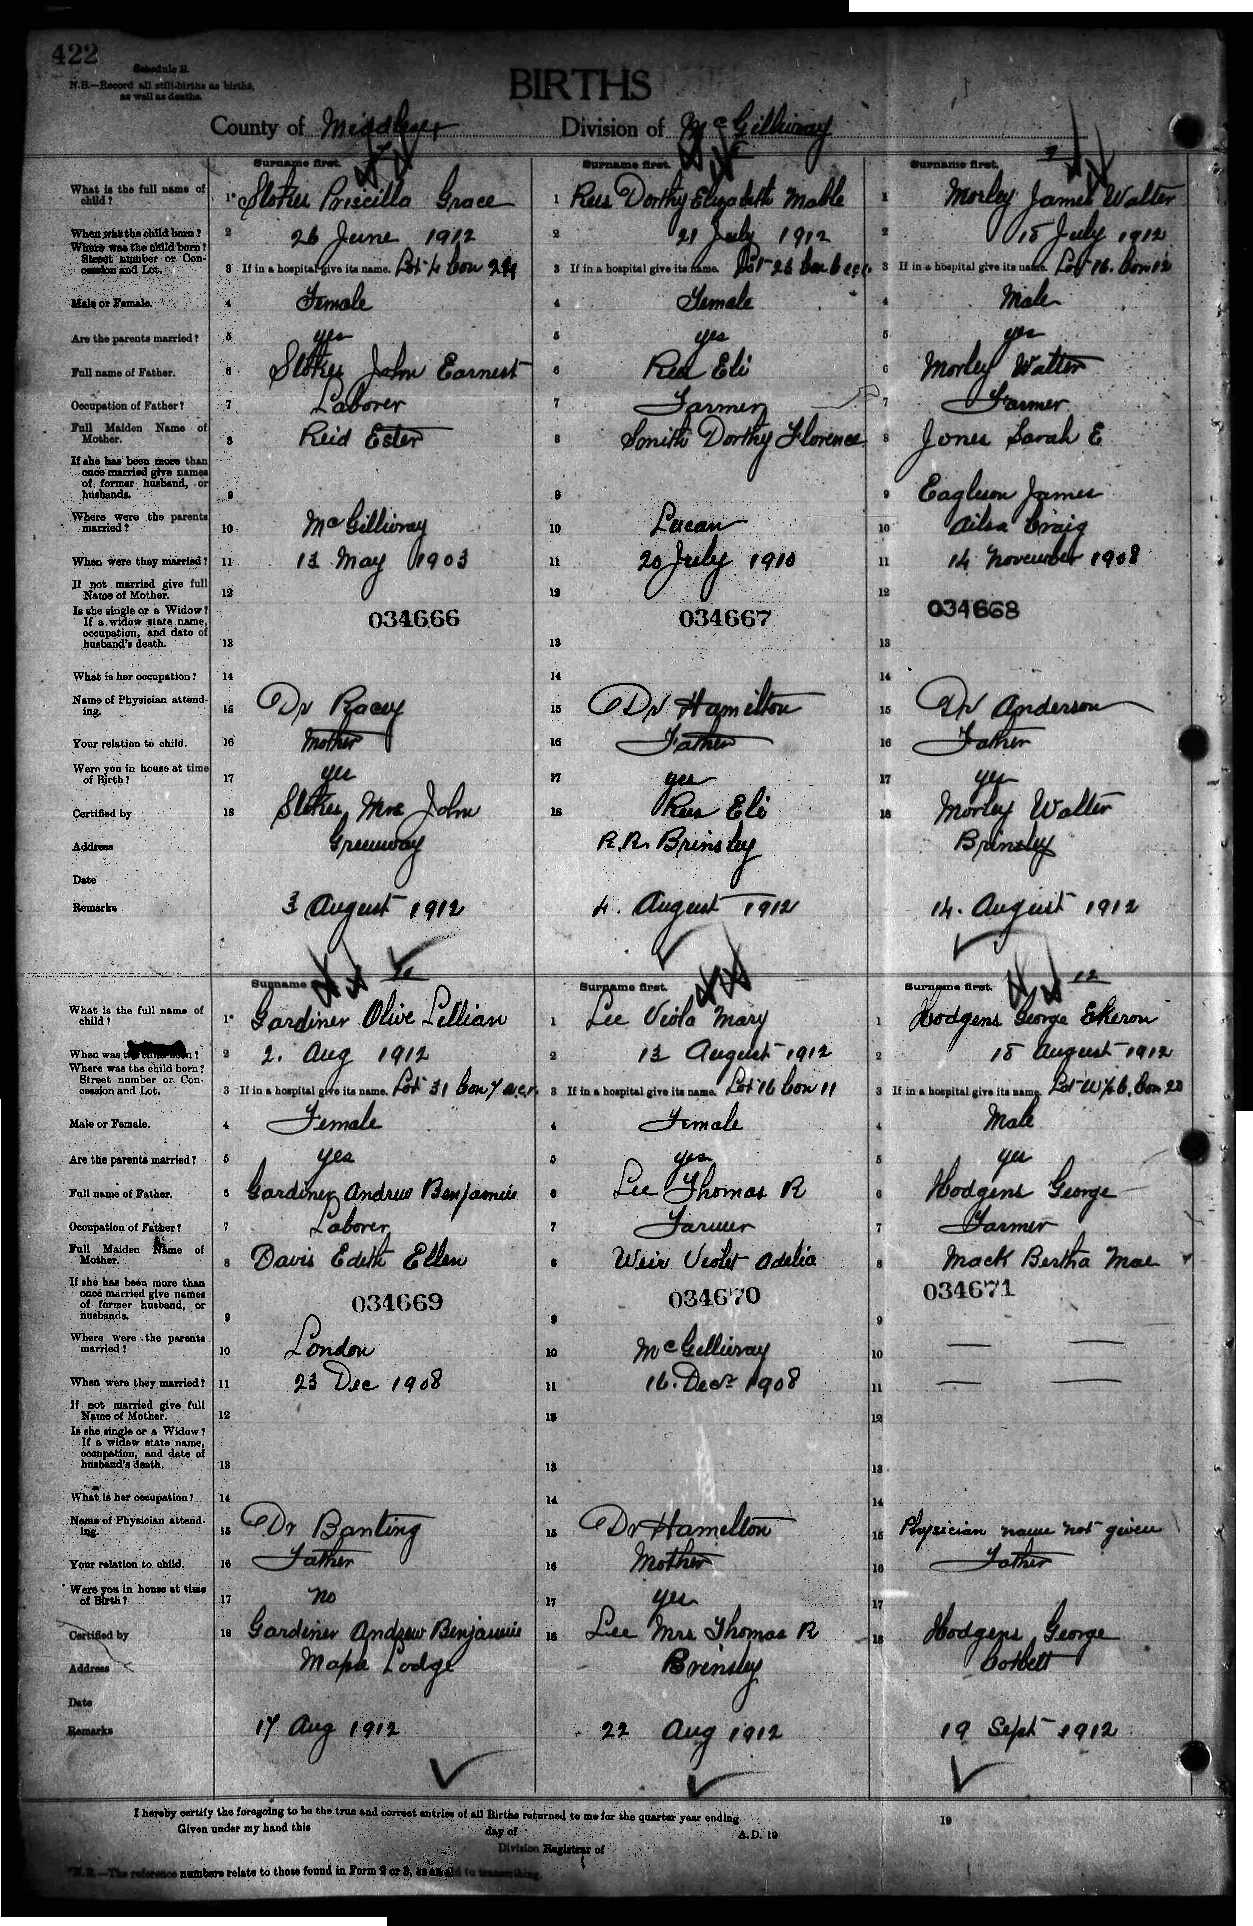 422
Schedule B.
N.B.—Record all still-births as births,
as well as deaths.
BIRTHS
County of Middlesex Division of McGillivray
Surname first. Surname first. Surname first.
What is the full name of child? 1* Stokes Priscilla Grace 1 Rees Dorthy Elizabeth Mable 1 Morley James Walter
When was the child born? 2 26 June 1912 2 21 July 1912 2 15 July 1912
Where was the child born? Street number or Concession and Lot. 3 If in a hospital give its name. Lot 4 Con 24 3 If in a hospital give its name. Lot 26 Con 6 3 If in a hospital give its name. Lot 16. Con 12
Male or Female. 4 Female 4 Female 4 Male
Are the parents married? 5 yes 5 yes 5 yes
Full name of Father. 6 Stokes John Earnest 6 Rees Eli 6 Morley Walter
Occupation of Father? 7 Laborer 7 Farmer 7 Farmer
Full Maiden Name of Mother. 8 Reid Ester 8 Smith Dorthy Florence 8 Jones Sarah E
If she has been more than once married give names of former husband, or husbands. 9 9 9 Eagleson James
Where were the parents married? 10 McGillivray 10 Lucan 10 Ailsa Craig
When were they married? 11 13 May 1903 11 20 July 1910 11 14 November 1908
If not married give full Name of Mother. 12 12 12
034666 034667 034668
Is she single or a Widow? If a widow state name, occupation, and date of husband's death. 13 13 13
What is her occupation? 14 14 14
Name of Physician attending. 15 Dr Racey 15 Dr Hamilton 15 Dr Anderson
Your relation to child. 16 Mother 16 Father 16 Father
Were you in house at time of Birth? 17 yes 17 yes 17 yes
Certified by 18 Stokes, Mrs John 18 Rees Eli 18 Morley Walter
Address Greenway R.R. Brinsley Brinsley
Date
Remarks 3 August 1912 4. August 1912 14. August 1912
Surname first. Surname first. 12
What is the full name of child? 1* Gardiner Olive Lillian 1 Lee Viola Mary 1 Hodgens George Ekeron
When was the child born? 2 2. Aug 1912 2 13 August 1912 2 15 August 1912
Where was the child born? Street number or Concession and Lot. 3 If in a hospital give its name. Lot 31 Con 7 3 If in a hospital give its name. Lot 16 Con 11 3 If in a hospital give its name. Lot W½ 6, Con 20
Male or Female. 4 Female 4 Female 4 Male
Are the parents married? 5 yes 5 yes 5 yes
Full name of Father. 6 Gardiner Andrew Benjamin 6 Lee Thomas R 6 Hodgens George
Occupation of Father? 7 Laborer 7 Farmer 7 Farmer
Full Maiden Name of Mother. 8 Davis Edeth Ellen 8 Weir Violet Adelia 8 Mack Bertha Mae
034669 034670 034671
If she has been more than once married give names of former husband, or husbands. 9 9 9
Where were the parents married? 10 London 10 McGillivray 10 — —
When were they married? 11 23 Dec 1908 11 16. Decr 1908 11 — —
If not married give full Name of Mother. 12 12 12
Is she single or a Widow? If a widow state name, occupation, and date of husband's death. 13 13 13
What is her occupation? 14 14 14
Name of Physician attending. 15 Dr Banting 15 Dr Hamelton 15 Physician name not given
Your relation to child. 16 Father 16 Mother 16 Father
Were you in house at time of Birth? 17 no 17 yes 17
Certified by 18 Gardiner Andrew Benjamin 18 Lee Mrs Thomas R 18 Hodgens George
Address Maple Lodge Brinsley Corbett
Date
Remarks 17 Aug 1912 22 Aug 1912 19 Sept 1912
I hereby certify the foregoing to be the true and correct entries of all Births returned to me for the quarter year ending 19
Given under my hand this day of A.D. 19
Division Registrar of
*N.B.—The reference numbers relate to those found in Form 2 or 3, as an aid to transcribing.